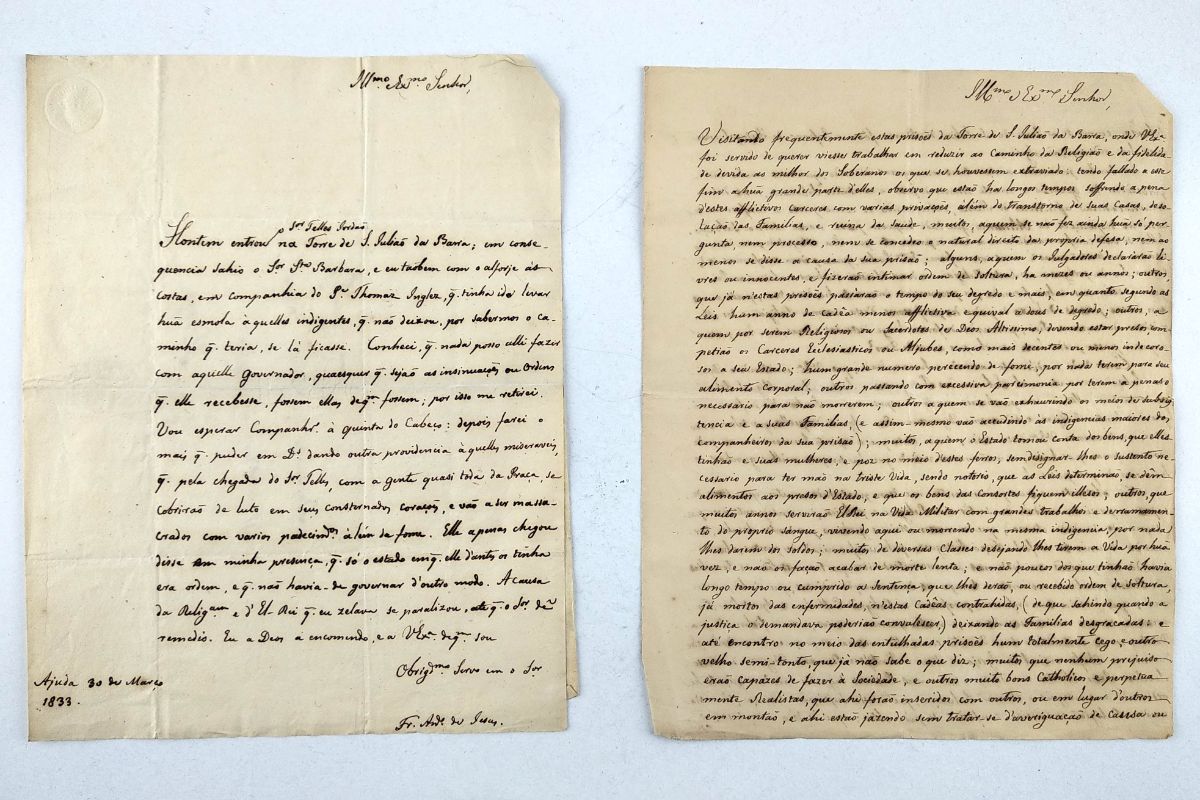 Illmo. Exmo. Senhor,
o Sor. Telles Jordão
Hontem entrou na Torre de S. Julião da Barra; em conse-
quencia sahio o Sor. Sta. Barbara, e eu tãobem com o alforje ás
costas, em companhia do Pe. Thomaz Inglez, q. tinha ido levar
huã esmola à quelles indigentes, q. não deixou, por sabermos o ca-
minho q. teria, se lá ficasse. Conheci, q. nada posso alli fazer
com aquelle Governador, quaesquer q. sejão as insinuaçs. ou Ordens
q. elle recebesse, fossem ellas de qm. fossem; por isso me retirei.
Vou esperar Companhr. à Quinta do Cabeço: depois farei o
mais q. puder em Ds. dando outra providencia àquelles miseraveis,
q. pela chegada do Sr. Telles, com a gente quasi toda da Praça, se
cobrirão de luto em seus consternados coraçs., e vão a ser massa-
crados com varios padecims. à lém da fome. Elle apenas chegou
disse em minha presença, q. só o estado em q. elle d'antes os tinha
era ordem, e q. não havia-de governar d'outro modo. A causa
da Religam. e d'El-Rei q. eu zelava se paralizou, até q. o Sor. dê
remedio. Eu a Deos a encomendo, e a V.Exa. de qm. sou
Obrigdmo. Servo em o Sor.
Ajuda 30 de Março
1833.
Fr. Ande. de Jesus.
Illmo. e Exmo. Senhor,
Visitando frequentemente estas prisões da Torre de S. Julião da Barra, onde V.Exa.
foi servido de querer viesse trabalhar em reduzir ao Caminho da Religião e da fidelida-
de devida ao melhor dos Soberanos os que se houvessem extraviado: tendo fallado a este
fim a huã grande parte d'elles, observo que estão ha longos tempos soffrendo a pena
d'estes afflictivos carceres com varias privações, além do transtorno de suas Casas, deso-
lação das Familias, e ruina da saude, muitos, aquem se não fez ainda huã só per-
gunta nem processo, nem se concedeo o natural direito da propria defesa, nem ao
menos se disse a causa da sua prisão; alguns, aquem os Julgadores declararão li-
vres ou innocentes, e fizerão intimar ordem de soltura, ha mezes ou annos; outros,
que já n'estas prisões passarão o tempo do seu degredo e mais, em quanto segundo as
Leis hum anno de cadêa menos afflictiva equival a dous de degredo; outros, a
quem por serem Religiosos ou Sacerdotes de Deos Altissimo, devendo estar presos com-
petião os Carceres Ecclesiasticos ou Aljubes, como mais decentes ou menos indecoro-
sos a seu Estado; hum grande numero perecendo de fome, por nada terem para seu
alimento corporal; outros passando com excessiva parcimonia por terem a penas o
necessario para não morrerem; outros a quem se vão exhaurindo os meios de subsis-
tencia e a suas Familias, (e assim-mesmo vão accudindo às indigencias maiores dos
companheiros da sua prisão); muitos, aquem o Estado tomou conta dos bens, que elles
tinhão e suas mulheres, e poz no meio d'estes ferros, sem designar lhes o sustento ne-
cessario para ter mão na triste Vida, sendo notorio, que as Leis determinão, se dêm
alimentos aos presos d'Estado, e que os bens das consortes fiquem illesos; outros, que
muitos annos servirão ElRei na Vida Militar com grandes trabalhos e derramamen-
to do proprio sângue, vivendo aqui ou morrendo na mesma indigencia, por nada
lhes darem dos soldos; muitos de diversas Classes desejando lhes tirem a Vida por huã
vez, e não os fação acabar de morte lenta; e não poucos dos que tinhão havia
longo tempo ou cumprido a Sentença, que lhes derão, ou recebido ordem de soltura,
já mortos das enfermidades, n'estas Cadêas contrahidas, (de que sahindo quando a
justiça o demandava poderião convalescer,) deixando as Familias desgraçadas: e
até encontro no meio das entulhadas prisões hum totalmente cego, e outro
velho semi-tonto, que já não sabe o que diz; muitos que nenhum prejuiso
erão capazes de fazer à Sociedade, e outros muito bons Catholicos e perpetua-
mente Realistas, que ahi forão inseridos com outros, ou em lugar d'outros
em montão, e ahi estão jazendo sem tratar-se d'averiguação de Causa ou